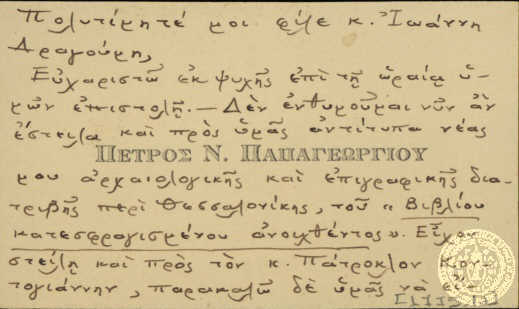 Πολυτίμητέ μοι φίλε κ. Ἰωάννη
Δραγούμη,
Εὐχαριστῶ ἐκ ψυχῆς ἐπὶ τῇ ὡραίᾳ ὑ-
μῶν ἐπιστολῇ.— Δὲν ἐνθυμοῦμαι νῦν ἂν
ἔστειλα καὶ πρὸς ὑμᾶς ἀντίτυπα νέας
ΠΕΤΡΟΣ Ν. ΠΑΠΑΓΕΩΡΓΙΟΥ
μου ἀρχαιολογικῆς καὶ ἐπιγραφικῆς δια-
τριβῆς περὶ Θεσσαλονίκης, τοῦ « Βιβλίου
κατεσφραγισμένου ἀνοιχθέντος ». Εἶχον
στείλῃ καὶ πρὸς τὸν κ. Πάτροκλον Κον-
τογιάννην, παρακαλῶ δὲ ὑμᾶς νὰ εἴ-